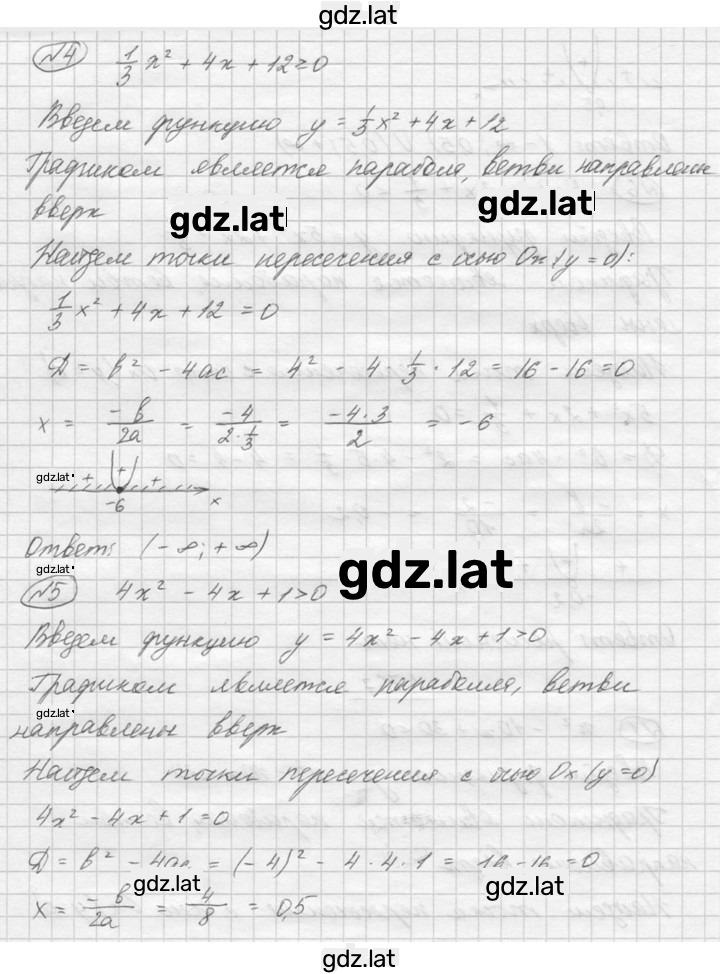 gdz.lat
№4 1/3 x² + 4x + 12 ≥ 0
Введем функцию y = 1/3 x² + 4x + 12
Графиком является парабола, ветви направлены
вверх
gdz.lat gdz.lat
Найдем точки пересечения с осью Ox (y = 0):
1/3 x² + 4x + 12 = 0
Д = b² - 4ac = 4² - 4 · 1/3 · 12 = 16 - 16 = 0
x = -b/2a = -4/(2·1/3) = -4·3/2 = -6
gdz.lat + + +
-6 x
Ответ: (-∞; +∞)
gdz.lat gdz.lat
№5 4x² - 4x + 1 > 0
Введем функцию y = 4x² - 4x + 1 > 0
Графиком является параболля, ветви
gdz.lat
направлены вверх
Найдем точки пересечения с осью Ox (y = 0)
4x² - 4x + 1 = 0
Д = b² - 4ac = (-4)² - 4 · 4 · 1 = 16 - 16 = 0
gdz.lat gdz.lat
x = -b/2a = 4/8 = 0,5
gdz.lat